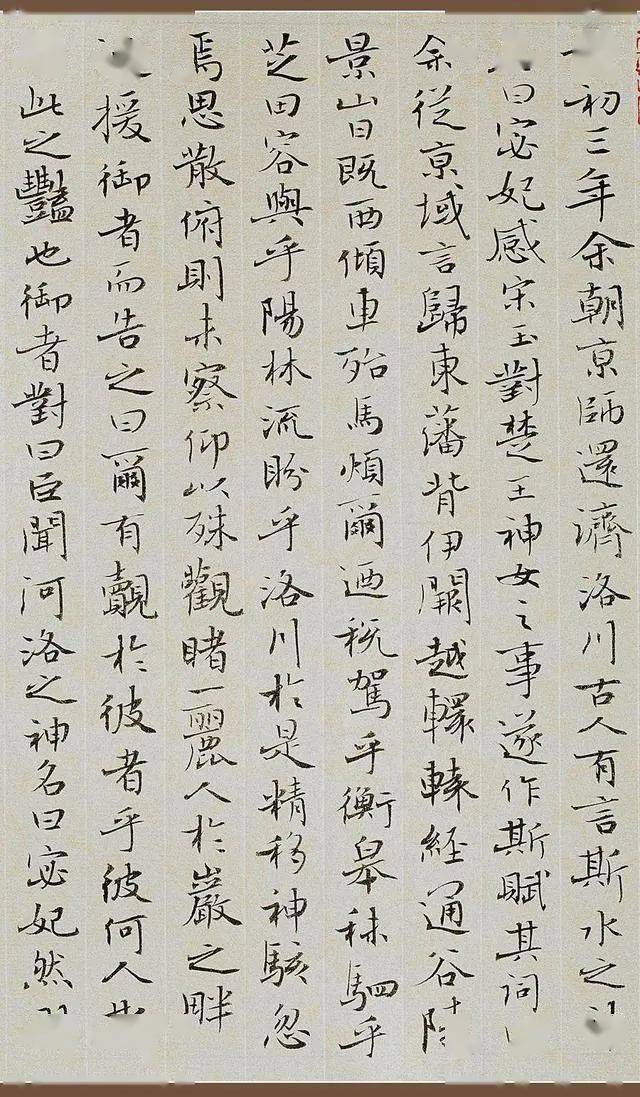 初三年余朝京師還濟洛川古人有言斯水之
曰宓妃感宋玉對楚王神女之事遂作斯賦其詞
余從京域言歸東藩背伊闕越轘轅經通谷
景山日既西傾車殆馬煩爾迺稅駕乎衡皋秣駟乎
芝田容與乎陽林流盼乎洛川於是精移神駭忽
焉思散俯則未察仰以殊觀睹一麗人於巖之畔
援御者而告之曰爾有覿於彼者乎彼何人
此之豔也御者對曰臣聞河洛之神名曰宓妃然